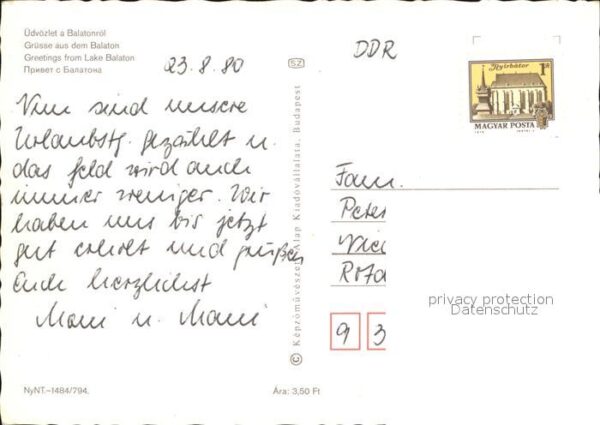 Üdvözlet a Balatonról
Grüsse aus dem Balaton
Greetings from Lake Balaton
Привет с Балатона
23.8.80
Nun sind unsere
Urlaubstg. gezählt u.
das Geld wird auch
immer weniger. Wir
haben uns bis jetzt
gut erholt und grüßen
Euch herzlichst
u.
NyNT.–1484/794.
Ára: 3,50 Ft
SZ
© Képzőművészeti Alap Kiadóvállalata, Budapest
DDR
Nyírbátor 1 Ft
MAGYAR POSTA
Fam.
Peter
93
privacy protection
Datenschutz